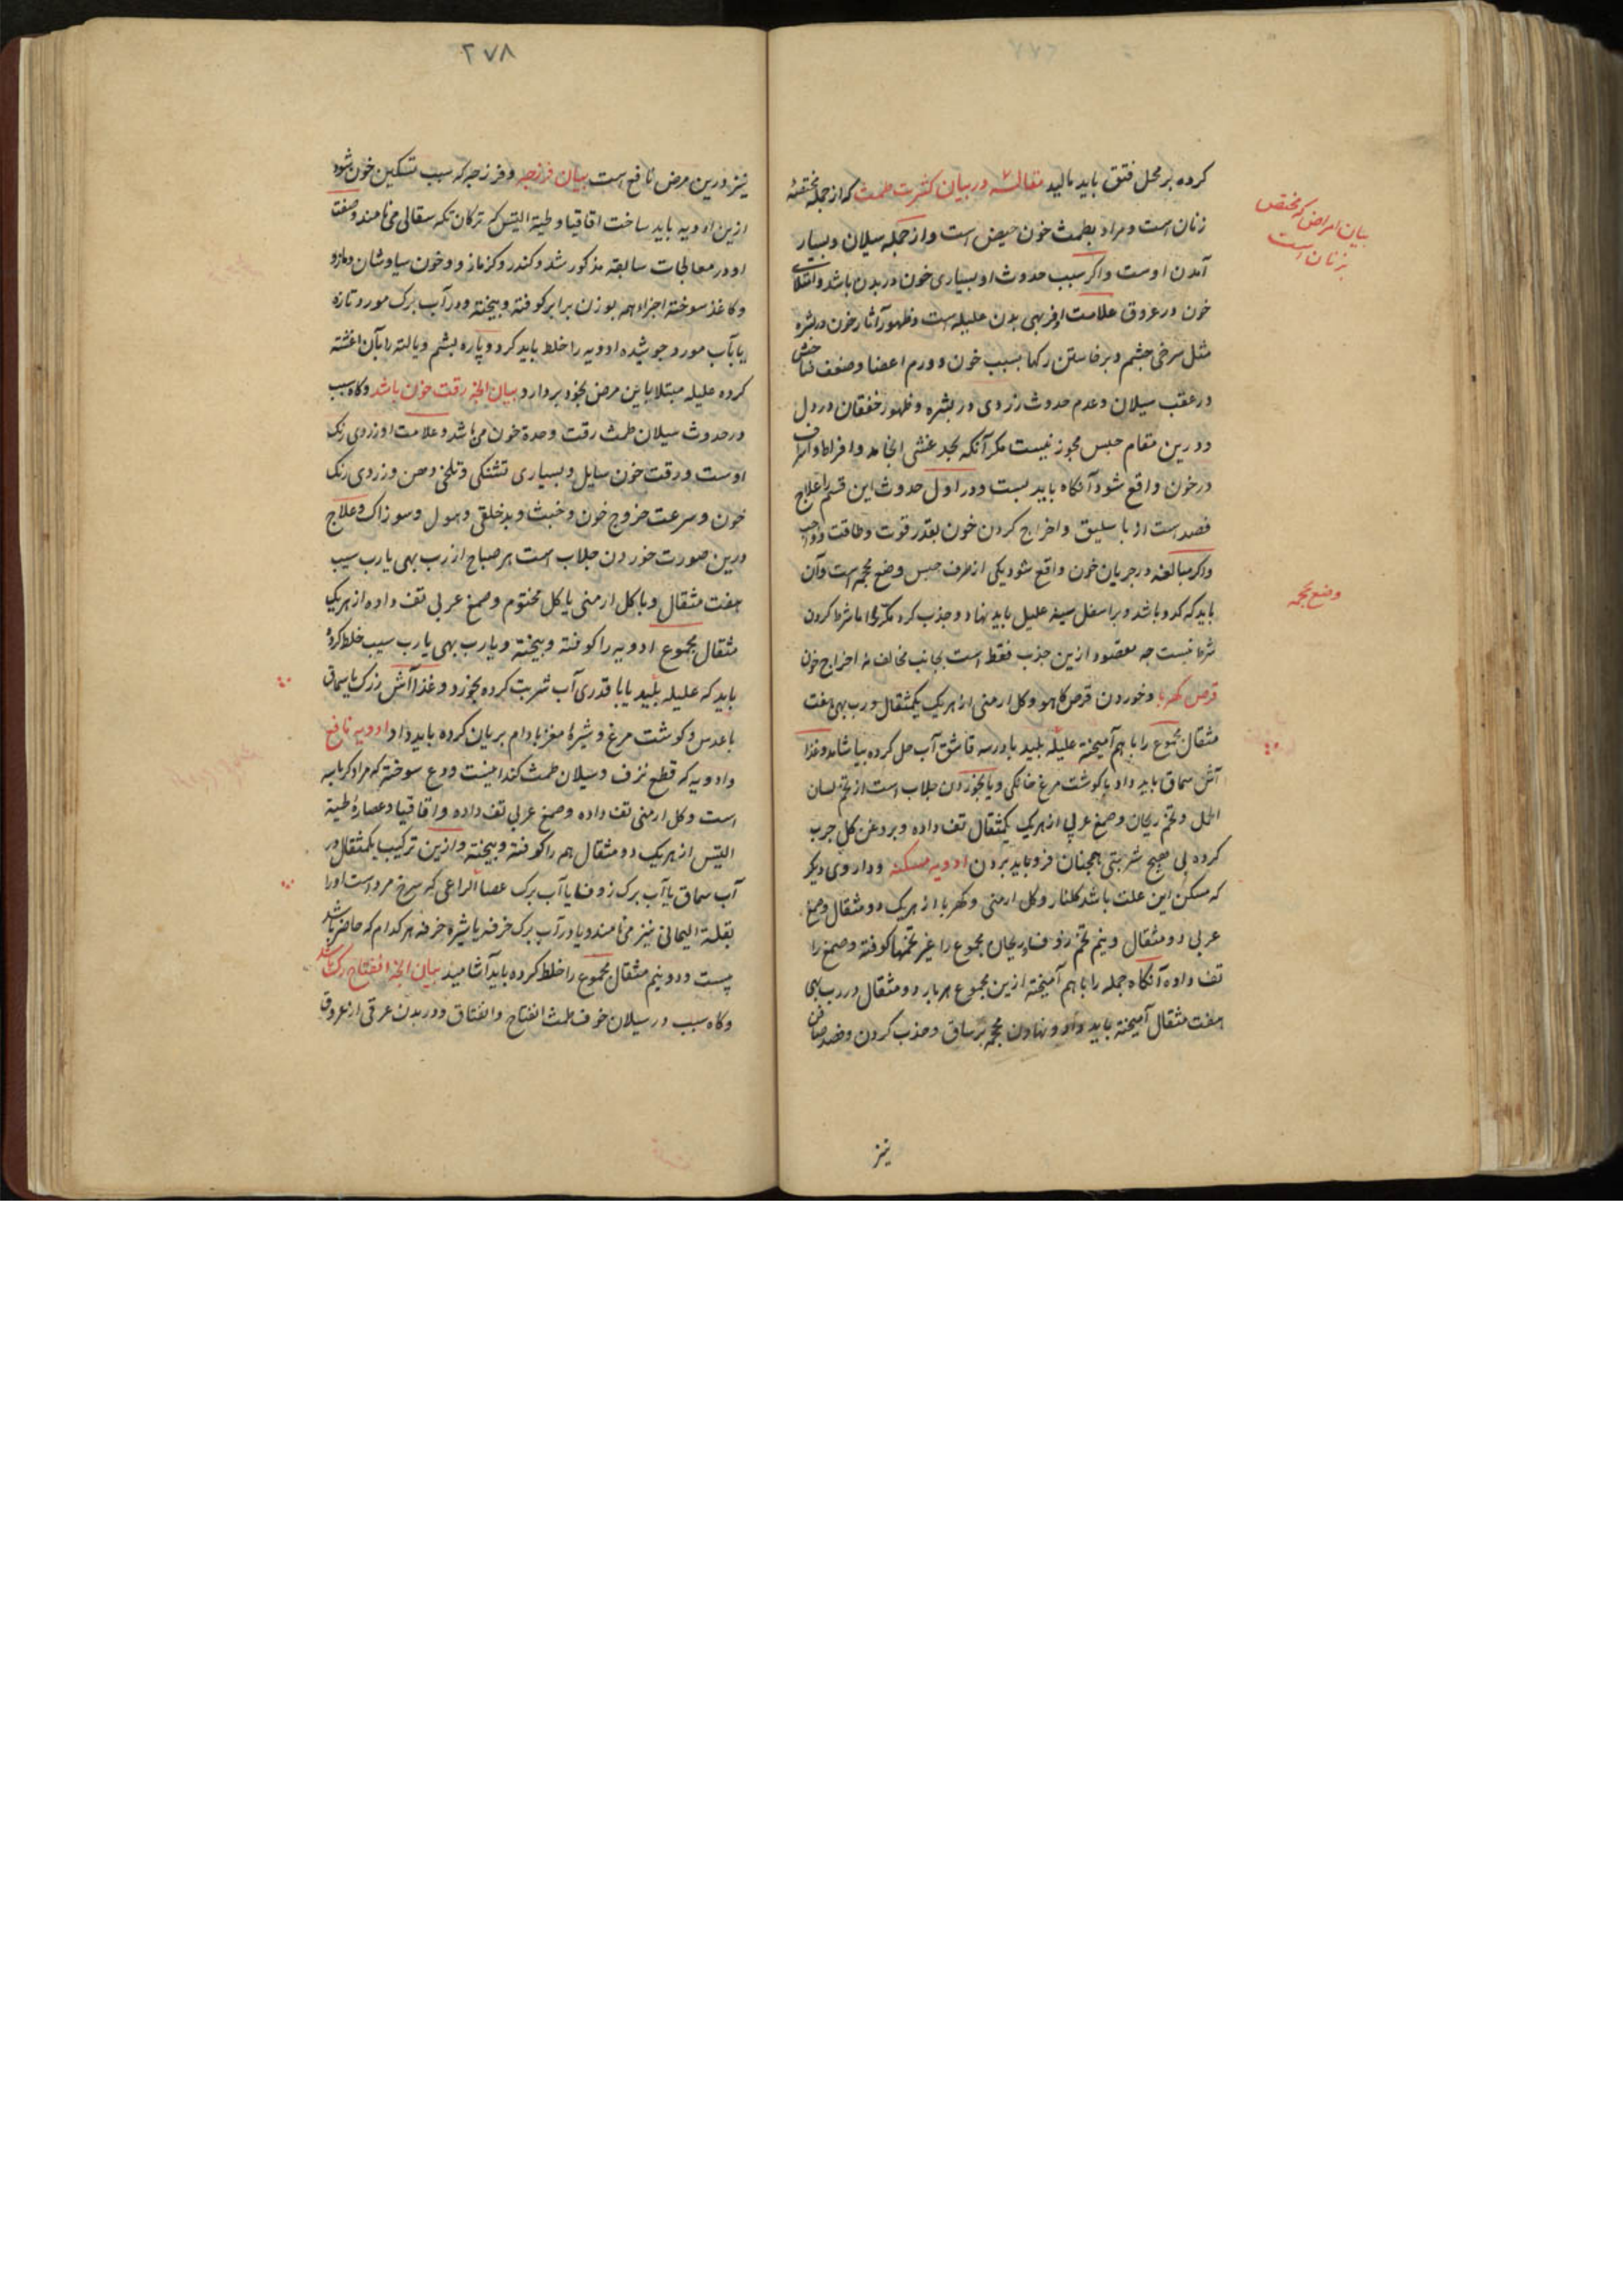 کرده بر محل فتق باید مالید مقالة در بیان کثرت طمث که از جمله مختصهٔ
زنان است و مراد بطمث خون حیض است و از جمله سیلان و بسیار
آمدن اوست و اکر سبب حدوث او بسیاری خون در بدن باشد و امتلای
خون در عروق علامت او فربهی بدن علیله است و ظهور آثار خون در بشره
مثل سرخی چشم و برخاستن رکها بسبب خون و ورم اعضا و ضعف
در عقب سیلان و عدم حدوث زردی در بشره و ظهور خفقان در دل
و درین مقام حبس مجوز نیست مکر آنکه بحد غشی انجامد و افراط و اسراف
در خون واقع شود آنکاه باید بست و در اول حدوث این قسم را علاج
فصد است از باسلیق و اخراج کردن خون بقدر قوت و طاقت و واجب
و اکر مبالغه در جریان خون واقع شود یکی از طرف حبس وضع محجمه است و آن
باید که کدو باشد و بر اسفل سینه علیل باید نهاد و جذب کرد مکرر اما شرط کردن
شرط نیست چه مقصود ازین جذب فقط است بجانب مخالف نه اخراج خون
قرص کهربا و خوردن قرص کاهو و کل ارمنی از هر یک یکمثقال و رب بهی هفت
مثقال مجموع را باهم آمیخته علیله بلیید یا در سه قاشق آب حل کرده بیاشامد و غذا
آش سماق باید داد با کوشت مرغ خانکی و یا بخوردن جلاب است از تخم لسان
الحمل و تخم ریحان و صمغ عربی از هر یک یکمثقال تف داده و بروغن کل چرب
کرده بی هیچ شربتی همچنان فرو باید بردن ادویه مسکنه و داروی دیکر
که مسکن این علت باشد کلنار و کل ارمنی و کهربا از هر یک دو مثقال و صمغ
عربی دو مثقال و نیم تخم زوفا و ریحان مجموع را غیر تخمها کوفته و صمغ را
تف داده آنکاه جمله را باهم آمیخته ازین مجموع هر بار دو مثقال در رب بهی
هفت مثقال آمیخته باید داد و نهادن محجمه بر ساق و جذب کردن و فصد صافن
نیز
بیان امراض که مختص
بزنان است
وضع محجمه
۲۷۸
نیز درین مرض نافع است بیان فرزجه و فرزجه که سبب تسکین خون شود
ازین ادویه باید ساخت اقاقیا و طیة التیس که ترکان تکه سقالی می نامند و صفت
او در معالجات سابقه مذکور شد و کندر و کزمازو و خون سیاوشان و مازو
و کاغذ سوخته اجزاء همه بوزن برابر کوفته و بیخته و در آب برک مورد تازه
یا بآب مورد جوشیده ادویه را خلط باید کرد و پاره پشم و یا لته را بآن اغشته
کرده علیله مبتلا باین مرض بخود بردارد بیان انچه رقت خون باشد و کاه سبب
در حدوث سیلان طمث رقت و حدة خون می باشد و علامت او زردی رنک
اوست و رقت خون سایل و بسیاری تشنکی و تلخی دهن و زردی رنک
خون و سرعت خروج خون و خبث و بدخلقی و هول و سوزاک و علاج
درین صورت خوردن جلاب است هر صباح از رب بهی یا رب سیب
هفت مثقال و با کل ارمنی یا کل مختوم و صمغ عربی تف داده از هر یک
مثقال مجموع ادویه را کوفته و بیخته و با رب بهی یا رب سیب خلط کرده
باید که علیله بلیید یا با قدری آب شربت کرده بخورد و غذا آش زرک یا سماق
با عدس و کوشت مرغ و شیرهٔ مغز بادام بریان کرده باید داد ادویه نافع
و ادویه که قطع نزف و سیلان طمث کند اینست ودع سوخته که مراد
است و کل ارمنی تف داده و صمغ عربی تف داده و اقاقیا و عصارهٔ طیة
التیس از هر یک دو مثقال همه را کوفته و بیخته و ازین ترکیب یکمثقال در
آب سماق یا آب برک زوفا یا آب برک عصا الراعی که سرخ مرد است او را
بقلة الیمانی نیز می نامند و یا در آب برک خرفه یا شیرهٔ خرفه هر کدام که حاضر باشد
بیست و دو نیم مثقال مجموع را خلط کرده باید آشامید بیان انچه انفتاح رک باشد
و کاه سبب در سیلان خوف طمث انفتاح و انفتاق و در بدن عرقی از عروق